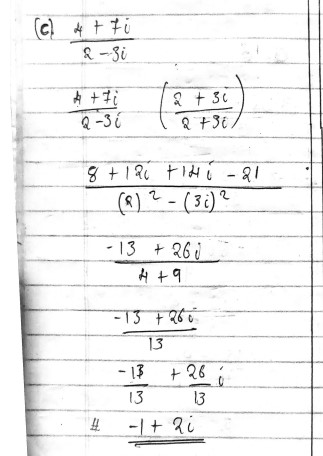 (c) 4 + 7i
2 - 3i
4 + 7i ( 2 + 3i )
2 - 3i 2 + 3i
8 + 12i + 14i - 21
(2)² - (3i)²
-13 + 26i
4 + 9
-13 + 26i
13
-13 + 26 i
13 13
# -1 + 2i